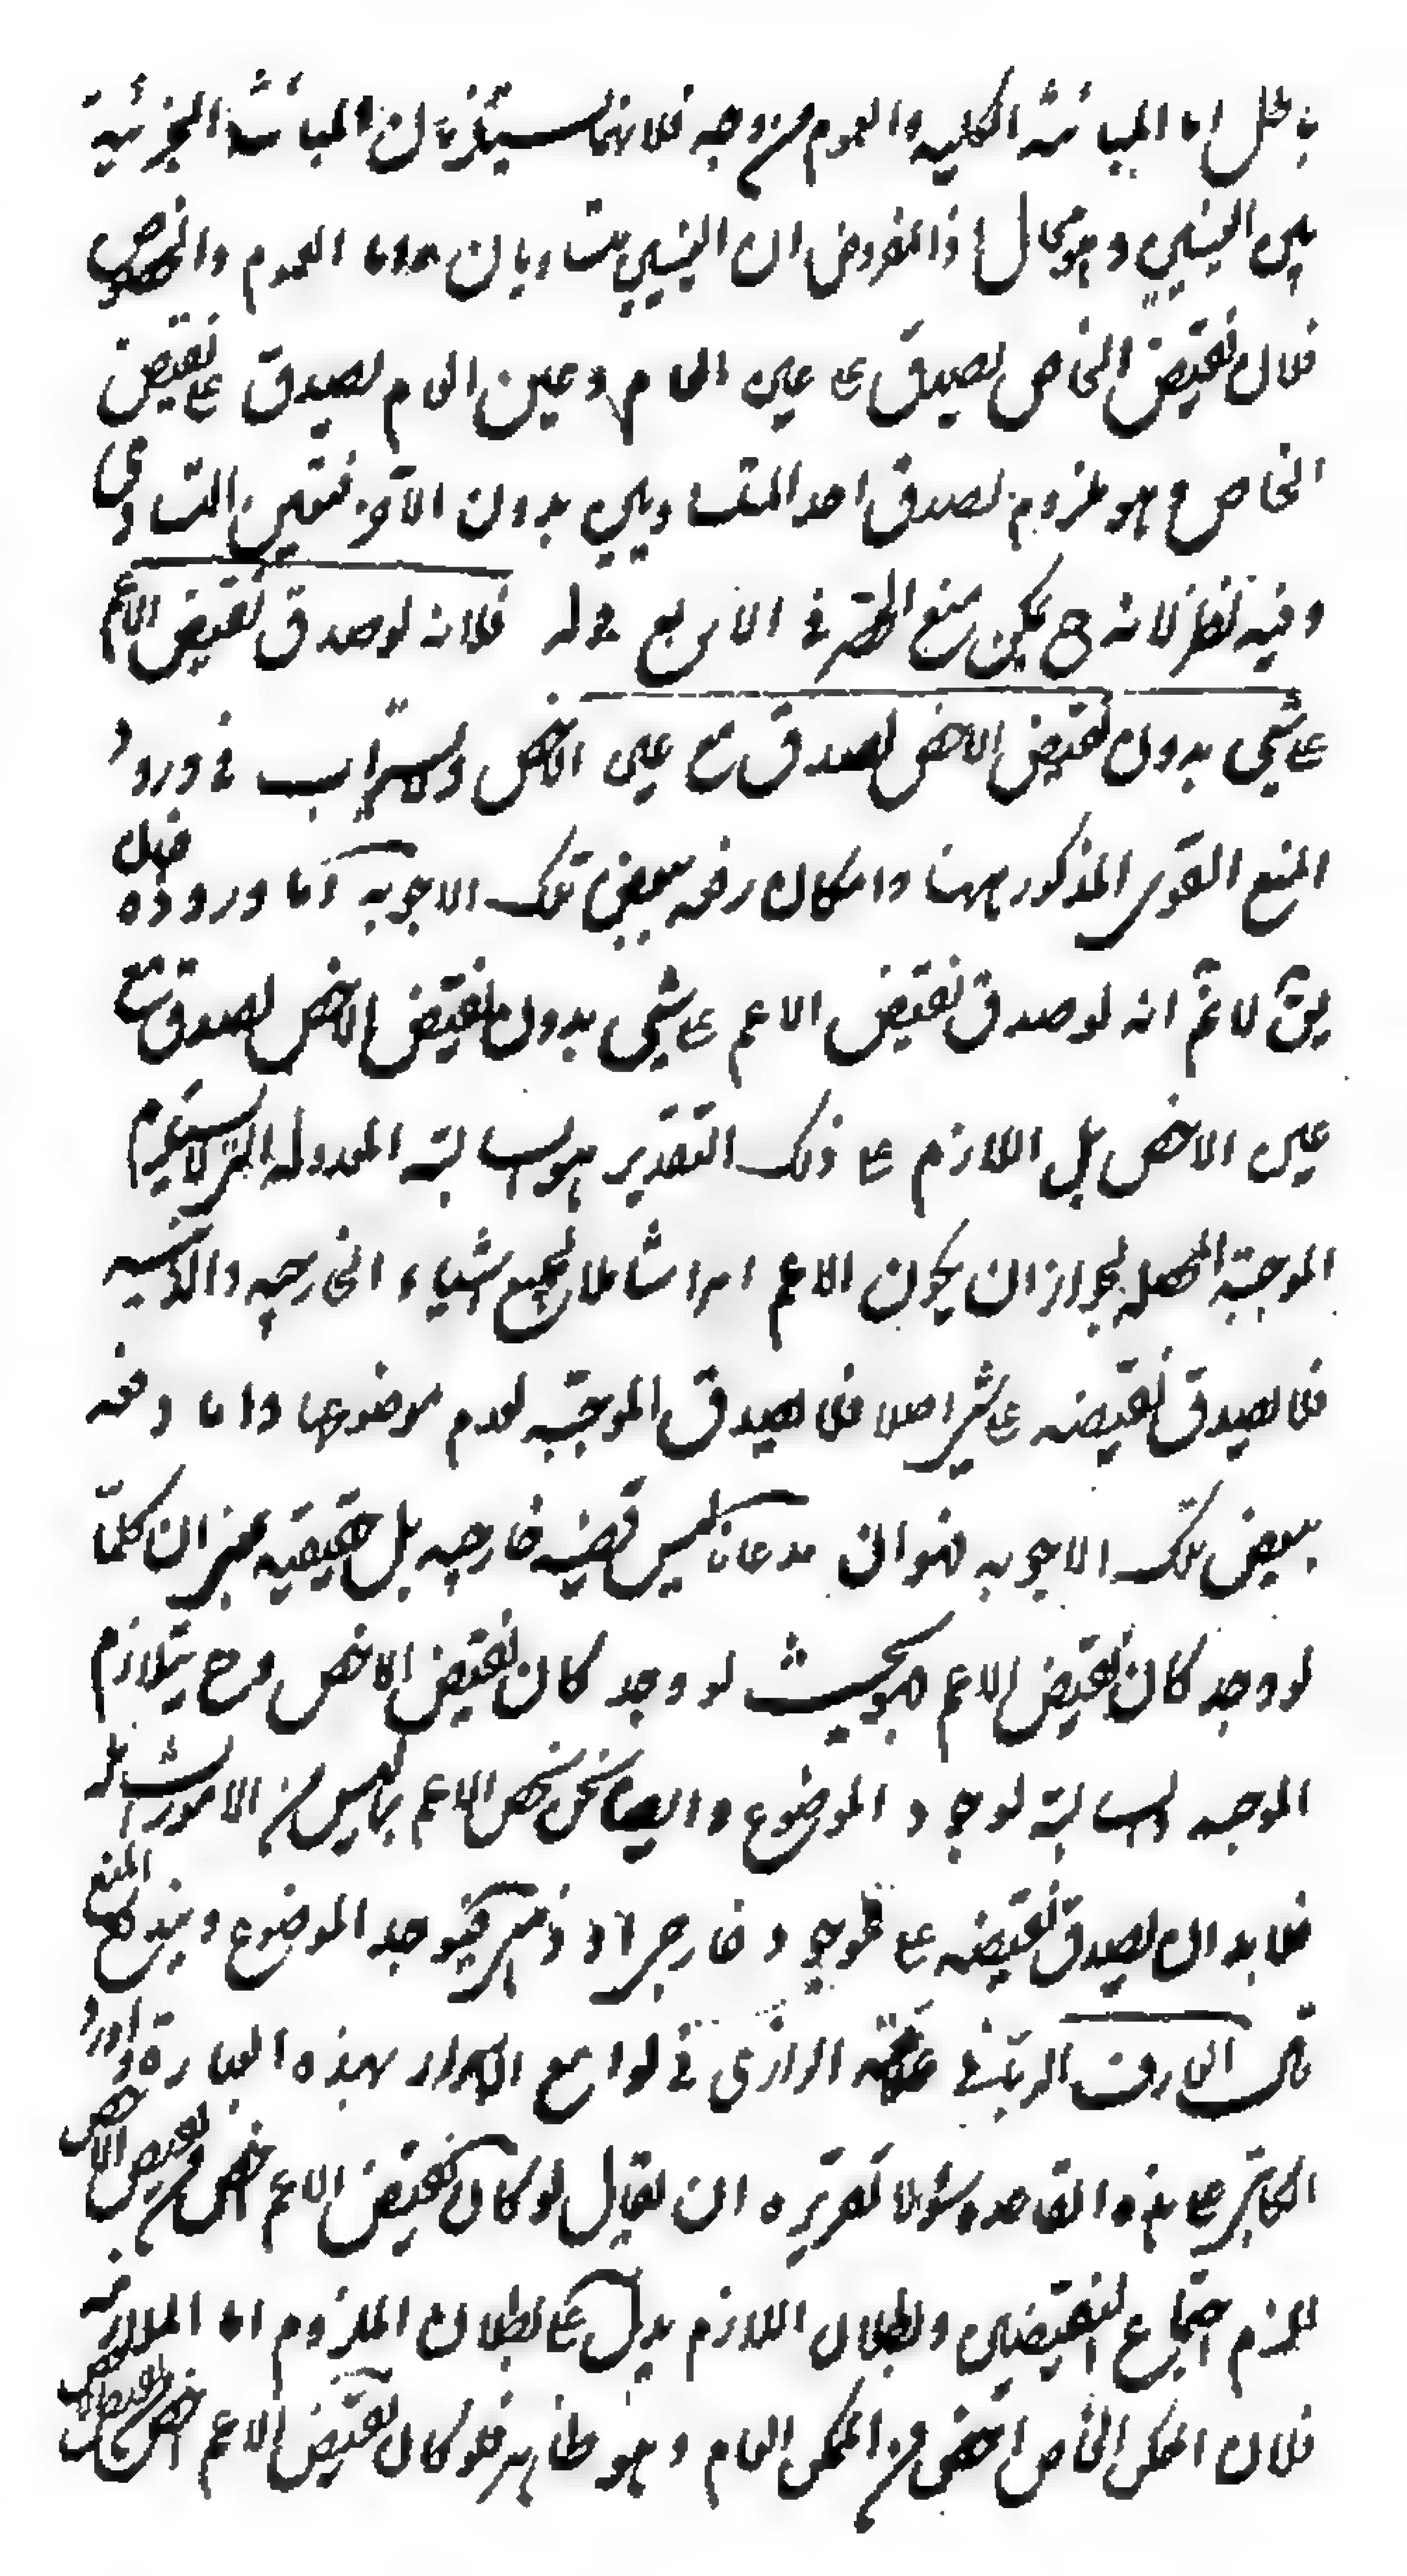 باطل اما المباينة الكليه والعموم من وجه فلانهما يستلزمان المباينة الجزئية
بين العينين وهو محال اذ المفروض ان العينين متساويان واما العموم والخصوص
فلان نقيض الخاص يصدق ع عين العام وعين العام يصدق ع نقيض
الخاص وهو ملزوم لصدق احد المتساويين بدون الآخر فتعين التساوى
وفيه نظر لانه ح يمكن منع الحصر فى الاربع قوله فلانه لو صدق نقيض الاعم
ع شى بدون نقيض الاخص لصدق مع عين الاخص ولاستراب فى ورود
المنع القوى المذكور ههنا وامكان دفعه ببعض تلك الاجوبه اما وروده فبان
يق لا نم انه لو صدق نقيض الاعم ع شى بدون نقيض الاخص لصدق مع
عين الاخص بل اللازم ع ذلك التقدير هو السالبة المعدوله التى لا يستلزم
الموجبة المحصله لجواز ان يكون الاعم امرا شاملا لجميع اشياء الخارجيه والذهنيه
فلا يصدق نقيضه ع شى اصلا فلا يصدق الموجبة لعدم موضوعها واما دفعه
ببعض تلك الاجوبه فهو ان مدعانا ليس قضيه خارجيه بل حقيقيه بمعنى ان كلما
لو وجد كان نقيض الاعم فهو بحيث لو وجد كان نقيض الاخص وح يتلازم
الموجبه والسالبة لوجود الموضوع وايضا نحن نخص الاعم بما ليس من الامور الشامله
فلا بد ان يصدق نقيضه ع موجود خارجى او ذهنى فيوجد الموضوع ويندفع المنع
قال العارف الربانى العلامه الرازى فى لوامع الاسرار بهذه العبارة واورد
الكاتبى ع هذه القاعده سئولا تقريره ان يقال لو كان نقيض الاعم اخص من نقيض الاخص
يلزم اجتماع النقيضين وبطلان اللازم يدل ع بطلان الملزوم اما الملازمه
فلان الممكن الخاص اخص من الممكن العام وهو ظاهر فلو كان نقيض الاعم اخص من نقيض الاخص